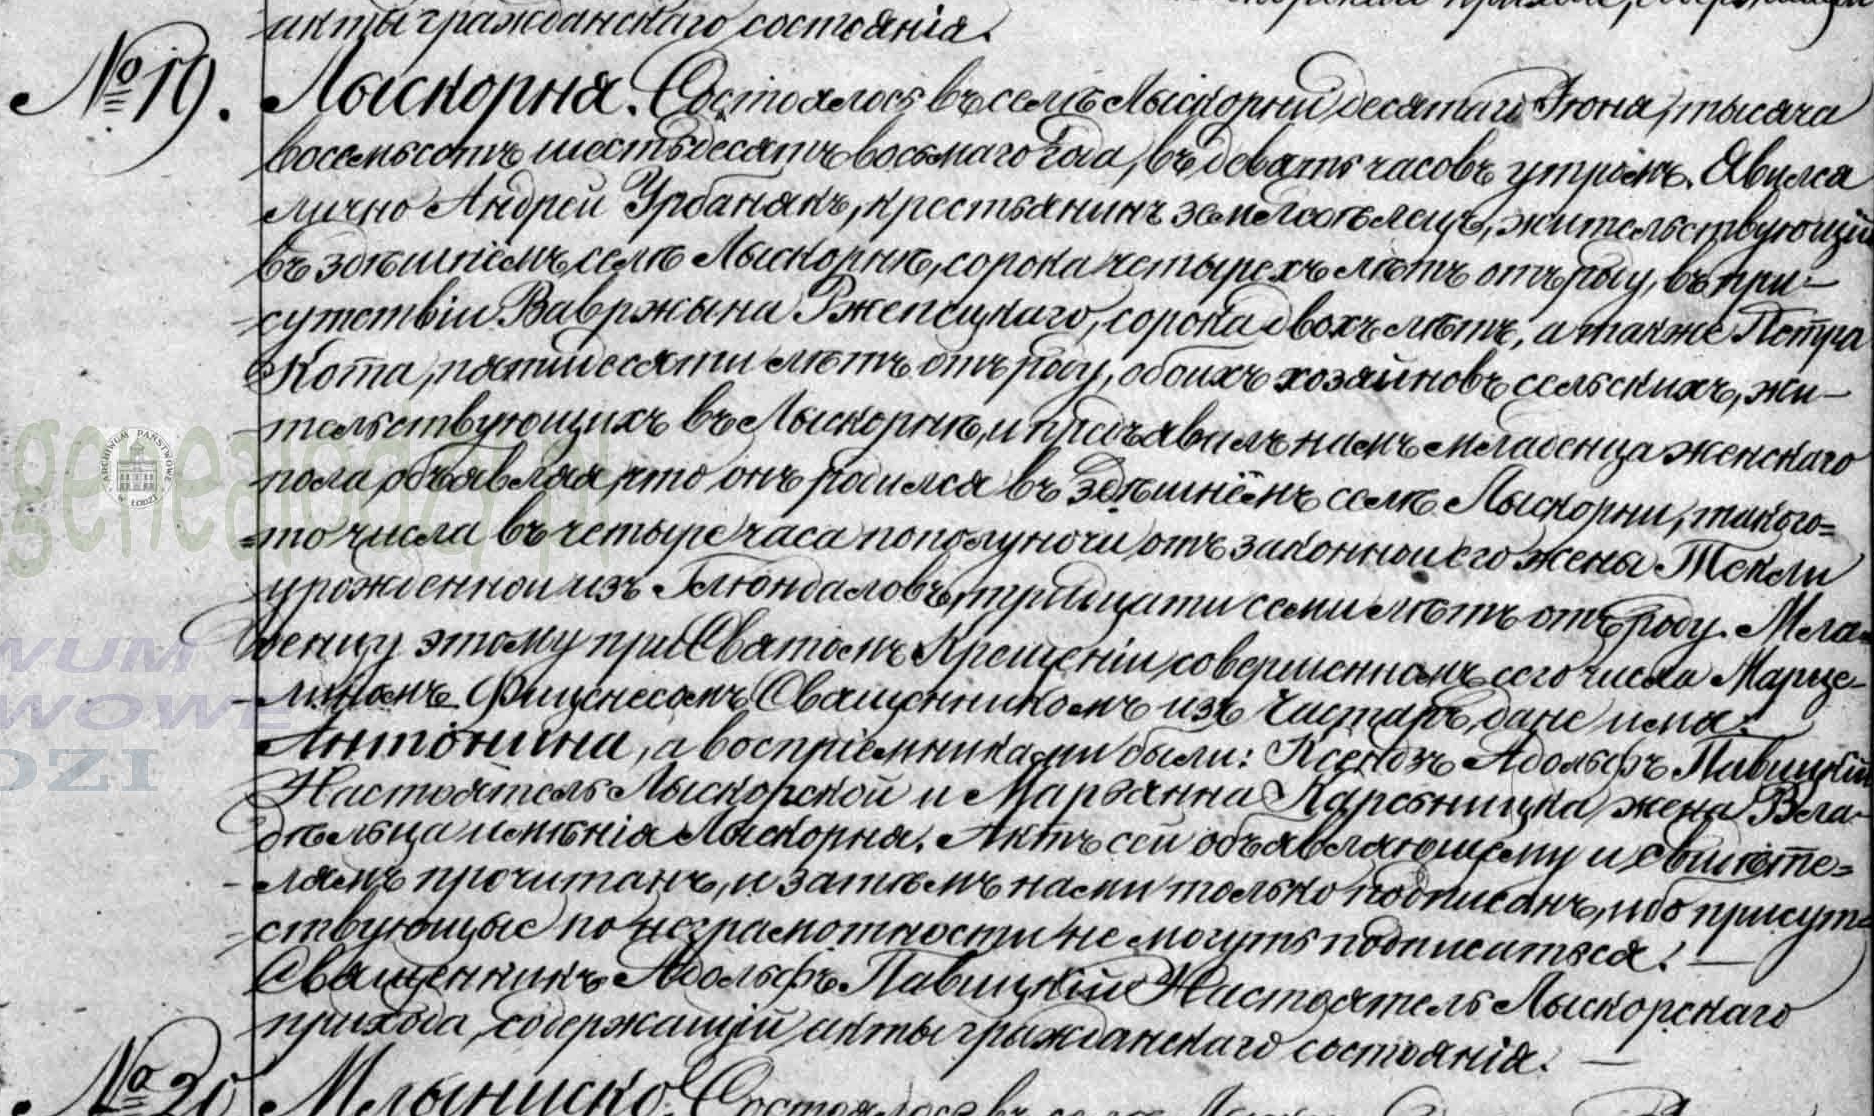 акты гражданскаго состоянія.
№ 19. Лыскорня. Состоялось въ селѣ Лыскорни десятаго Іюня, тысяча
восемьсотъ шестьдесятъ восьмаго года, въ девять часовъ утромъ. Явился
лично Андрей Урбанякъ, крестьянинъ земледѣлецъ, жительствующій
въ здѣшнемъ селѣ Лыскорнѣ, сорока четырехъ лѣтъ отъ роду, въ при-
сутствіи Вавржына Ржепецкаго, сорока двохъ лѣтъ, а также Петра
Кота, пятидесяти лѣтъ отъ роду, обоихъ хозяиновъ сельскихъ, жи-
тельствующихъ въ Лыскорнѣ, и предъявилъ намъ младенца женскаго
пола объявляя, что онъ родился въ здѣшнемъ селѣ Лыскорни, такого-
=то числа въ четыре часа пополуночи отъ законной его жены Текли
урожденной изъ Глюндаловъ, тридцати семи лѣтъ отъ роду. Мла-
денцу этому при Святомъ Крещеніи, совершенномъ сего числа Марце-
линомъ Священникомъ изъ Чистаръ, дано имя:
Антонина, а воспріемниками были: Ксендзъ Адольфъ Павицкій
Настоятель Лыскорской и Марьянна Карсьницка жена Вла-
дѣльца имѣнія Лыскорня. Актъ сей объявляющему и свидѣте=
лямъ прочитанъ, и затѣмъ нами только подписанъ, ибо присут-
ствующые по неграмотности не могутъ подписаться. —
Священникъ Адольфъ Павицкій Настоятель Лыскорскаго
прихода, содержащій акты гражданскаго состоянія. —
№ 20 Млыниско. Состоялось въ селѣ
genealodzy.pl
ARCHIWUM PAŃSTWOWE
W ŁODZI
WUM
WOWE
DZI